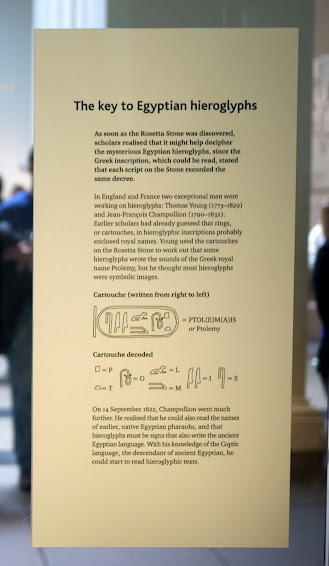 The key to Egyptian hieroglyphs
As soon as the Rosetta Stone was discovered,
scholars realised that it might help decipher
the mysterious Egyptian hieroglyphs, since the
Greek inscription, which could be read, stated
that each script on the Stone recorded the
same decree.
In England and France two exceptional men were
working on hieroglyphs: Thomas Young (1773–1829)
and Jean-François Champollion (1790–1832).
Earlier scholars had already guessed that rings,
or cartouches, in hieroglyphic inscriptions probably
enclosed royal names. Young used the cartouches
on the Rosetta Stone to work out that some
hieroglyphs wrote the sounds of the Greek royal
name Ptolemy, but he thought most hieroglyphs
were symbolic images.
Cartouche (written from right to left)
= PTOL(E)M(A)IS
or Ptolemy
Cartouche decoded
= P = O = L = I = S
= T = M
On 14 September 1822, Champollion went much
further. He realised that he could also read the names
of earlier, native Egyptian pharaohs, and that
hieroglyphs must be signs that also write the ancient
Egyptian language. With his knowledge of the Coptic
language, the descendant of ancient Egyptian, he
could start to read hieroglyphic texts.